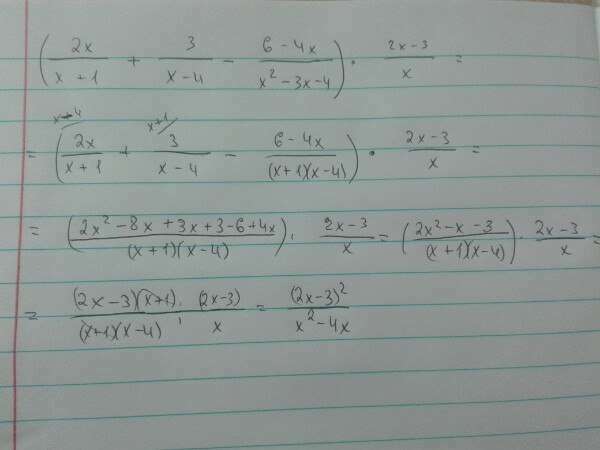 ( 2x/(x+1) + 3/(x-4) - (6-4x)/(x²-3x-4) ) · (2x-3)/x =
x-4 x+1
= ( 2x/(x+1) + 3/(x-4) - (6-4x)/((x+1)(x-4)) ) · (2x-3)/x =
= ( (2x²-8x+3x+3-6+4x)/((x+1)(x-4)) ) · (2x-3)/x = ( (2x²-x-3)/((x+1)(x-4)) ) · (2x-3)/x =
= ((2x-3)(x+1))/((x+1)(x-4)) · (2x-3)/x = (2x-3)²/(x²-4x)